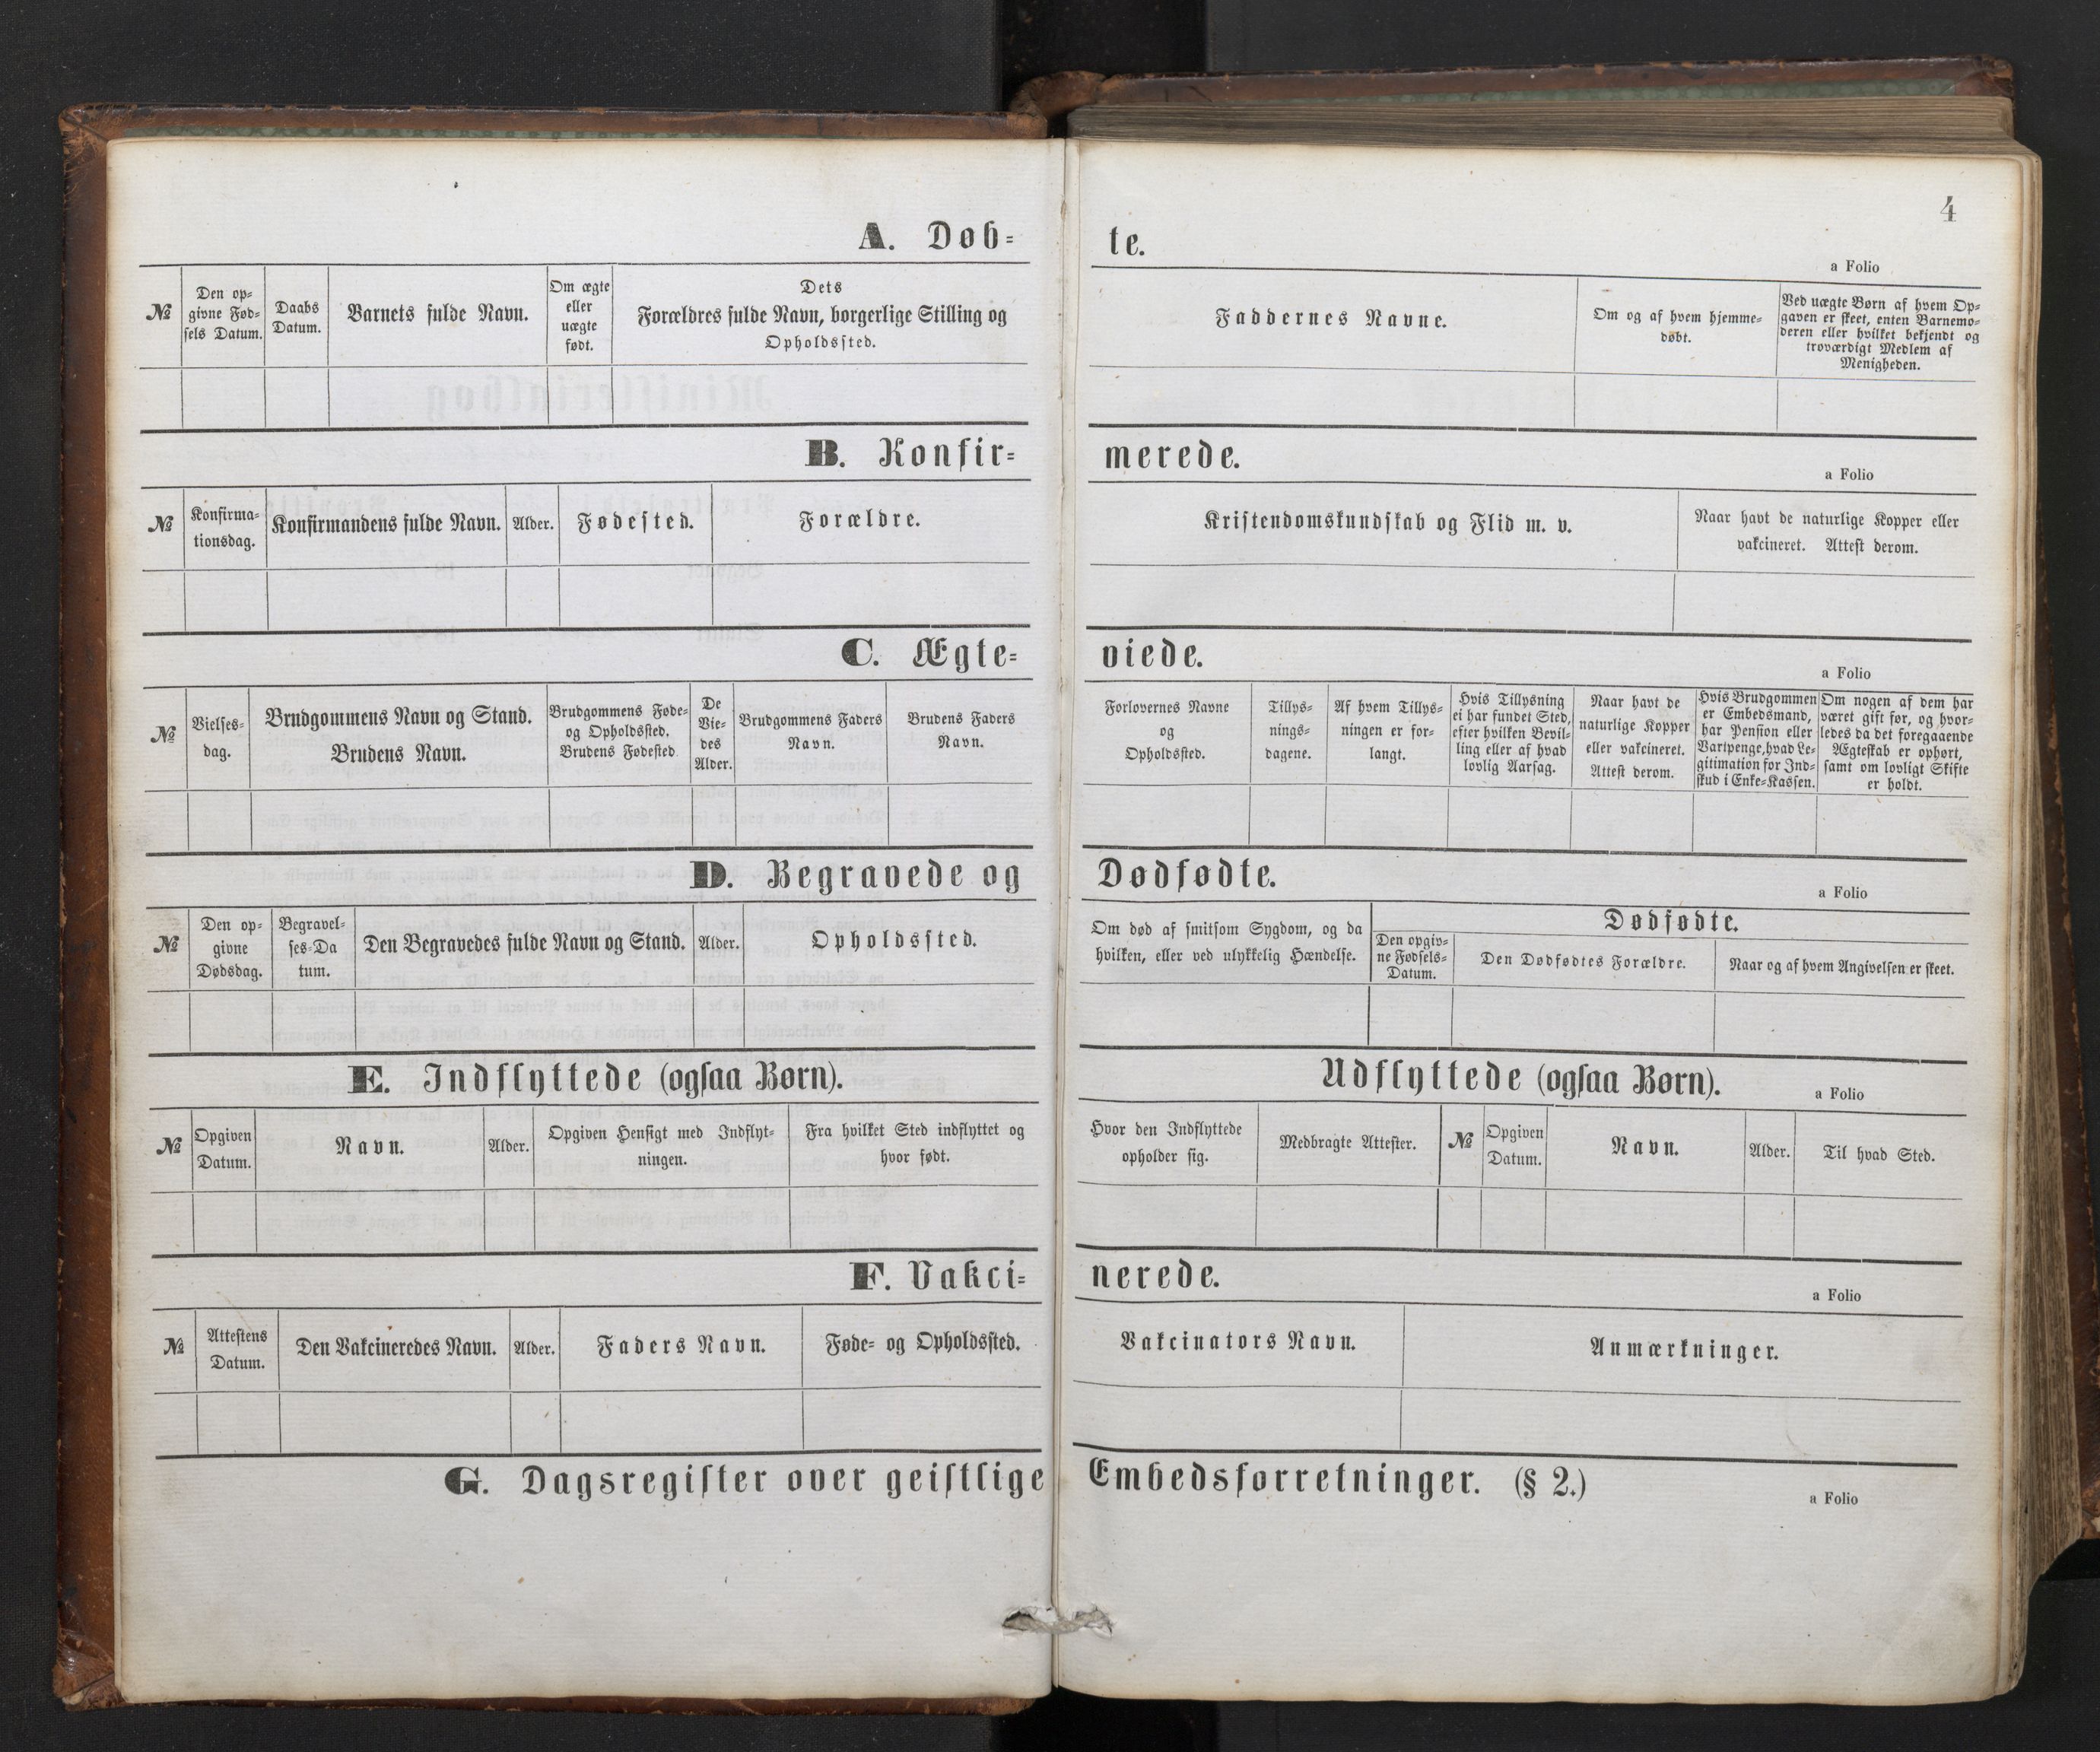 4
A. Døb-te.
a Folio
№
Den op-
givne Fød-
sels Datum.
Daabs
Datum.
Barnets fulde Navn.
Om ægte
eller
uægte
født.
Dets
Forældres fulde Navn, borgerlige Stilling og
Opholdssted.
Faddernes Navne.
Om og af hvem hjemme-
døbt.
Ved uægte Børn af hvem Op-
gaven er skeet, enten Barnemo-
deren eller hvilket bekjendt og
troværdigt Medlem af
Menigheden.
B. Konfir-merede.
a Folio
№
Konfirma-
tionsdag.
Konfirmandens fulde Navn.
Alder.
Fødested.
Forældre.
Kristendomskundskab og Flid m. v.
Naar havt de naturlige Kopper eller
vakcineret. Attest derom.
C. Ægte-viede.
a Folio
№
Vielses-
dag.
Brudgommens Navn og Stand.
Brudens Navn.
Brudgommens Føde-
og Opholdssted.
Brudens Fødested
De
Vie-
des
Alder.
Brudgommens Faders
Navn.
Brudens Faders
Navn.
Forlovernes Navne
og
Opholdssted.
Tillys-
nings-
dagene.
Af hvem Tillys-
ningen er for-
langt.
Hvis Tillysning
ei har fundet Sted,
efter hvilken Bevil-
ling eller af hvad
lovlig Aarsag.
Naar havt de
naturlige Kopper
eller vakcineret.
Attest derom.
Hvis Brudgommen
er Embedsmand,
har Pension eller
Vartpenge, hvad Le-
gitimation for Ind-
skud i Enke-Kassen.
Om nogen af dem har
været gift før, og hvor-
ledes da det foregaaende
Ægteskab er ophørt,
samt om lovligt Skifte
er holdt.
D. Begravede og Dødfødte.
a Folio
№
Den op-
givne
Dødsdag.
Begravel-
ses-Da
tum.
Den Begravedes fulde Navn og Stand.
Alder.
Opholdssted.
Om død af smitsom Sygdom, og da
hvilken, eller ved ulykkelig Hændelse.
Dødfødte.
Den opgiv-
ne Fødsels-
Datum.
Den Dødfødtes Forældre.
Naar og af hvem Angivelsen er skeet.
E. Indflyttede (ogsaa Børn).
Udflyttede (ogsaa Børn).
a Folio
№
Opgiven
Datum.
Navn.
Alder.
Opgiven Hensigt med Indflyt-
ningen.
Fra hvilket Sted indflyttet og
hvor født.
Hvor den Indflyttede
opholder sig.
Medbragte Attester.
№
Opgiven
Datum.
Navn.
Alder.
Til hvad Sted.
F. Vakci-nerede.
a Folio
№
Attestens
Datum.
Den Vakcineredes Navn.
Alder.
Faders Navn.
Føde- og Opholdssted.
Vakcinators Navn.
Anmærkninger.
G. Dagsregister over geistlige Embedsforretninger. (§ 2.)
a Folio